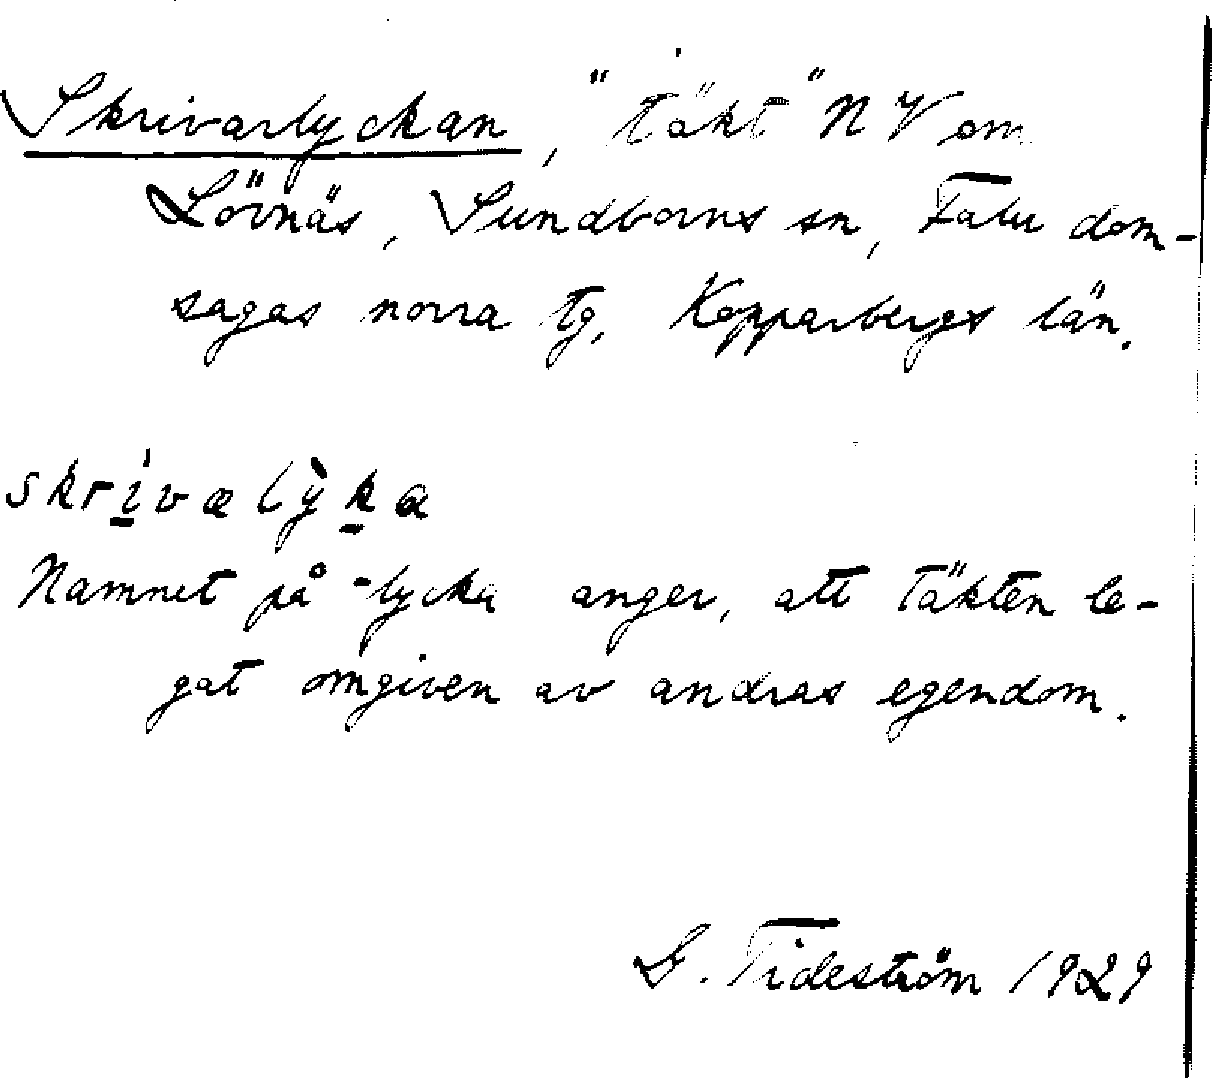 Skrivarlyckan, "täkt" NV om
Lövnäs, Sundborns sn, Falu dom-
sagas norra tg, Kopparbergs län.
skrívælỳka
Namnet på -lycka anger, att täkten le-
gat omgiven av andras egendom.
G. Tideström 1929